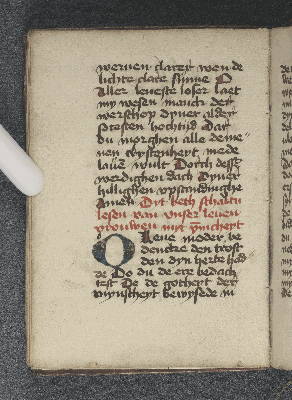 weruen clarer wen de
lichte clare sunne O
Aller leueste loser laet
my wesen manck der
werschop dyner alder
grotesten hochtijd Dar
du morghen alle dene
nen cristenheyt mede
lauen wult Dorch desse
werdighen dach dyner
hillighen vpstandinghe
Amen Dyt beth schaltu
lesen van vnser leuen
vrouwen myt ynicheyt
O Leue moder be
dencke den trost
den dyn herte had
de Do du de ere bedach
test De de gotheyt der
mynscheyt bewysede in